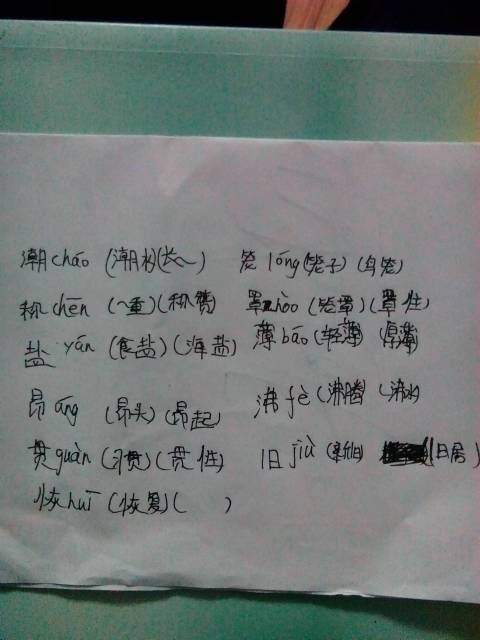 潮cháo (潮水)(长~) 笼lóng(笼子)(鸟笼)
称chēn (~重)(称赞) 罩zhào(笼罩)(罩住)
盐yán (食盐)(海盐) 薄báo(轻薄)(厚薄)
昂áng (昂头)(昂起) 沸fè(沸腾)(沸水)
贯guàn (习贯)(贯性) 旧jiù(新旧)(旧居)
恢huī (恢复)( )